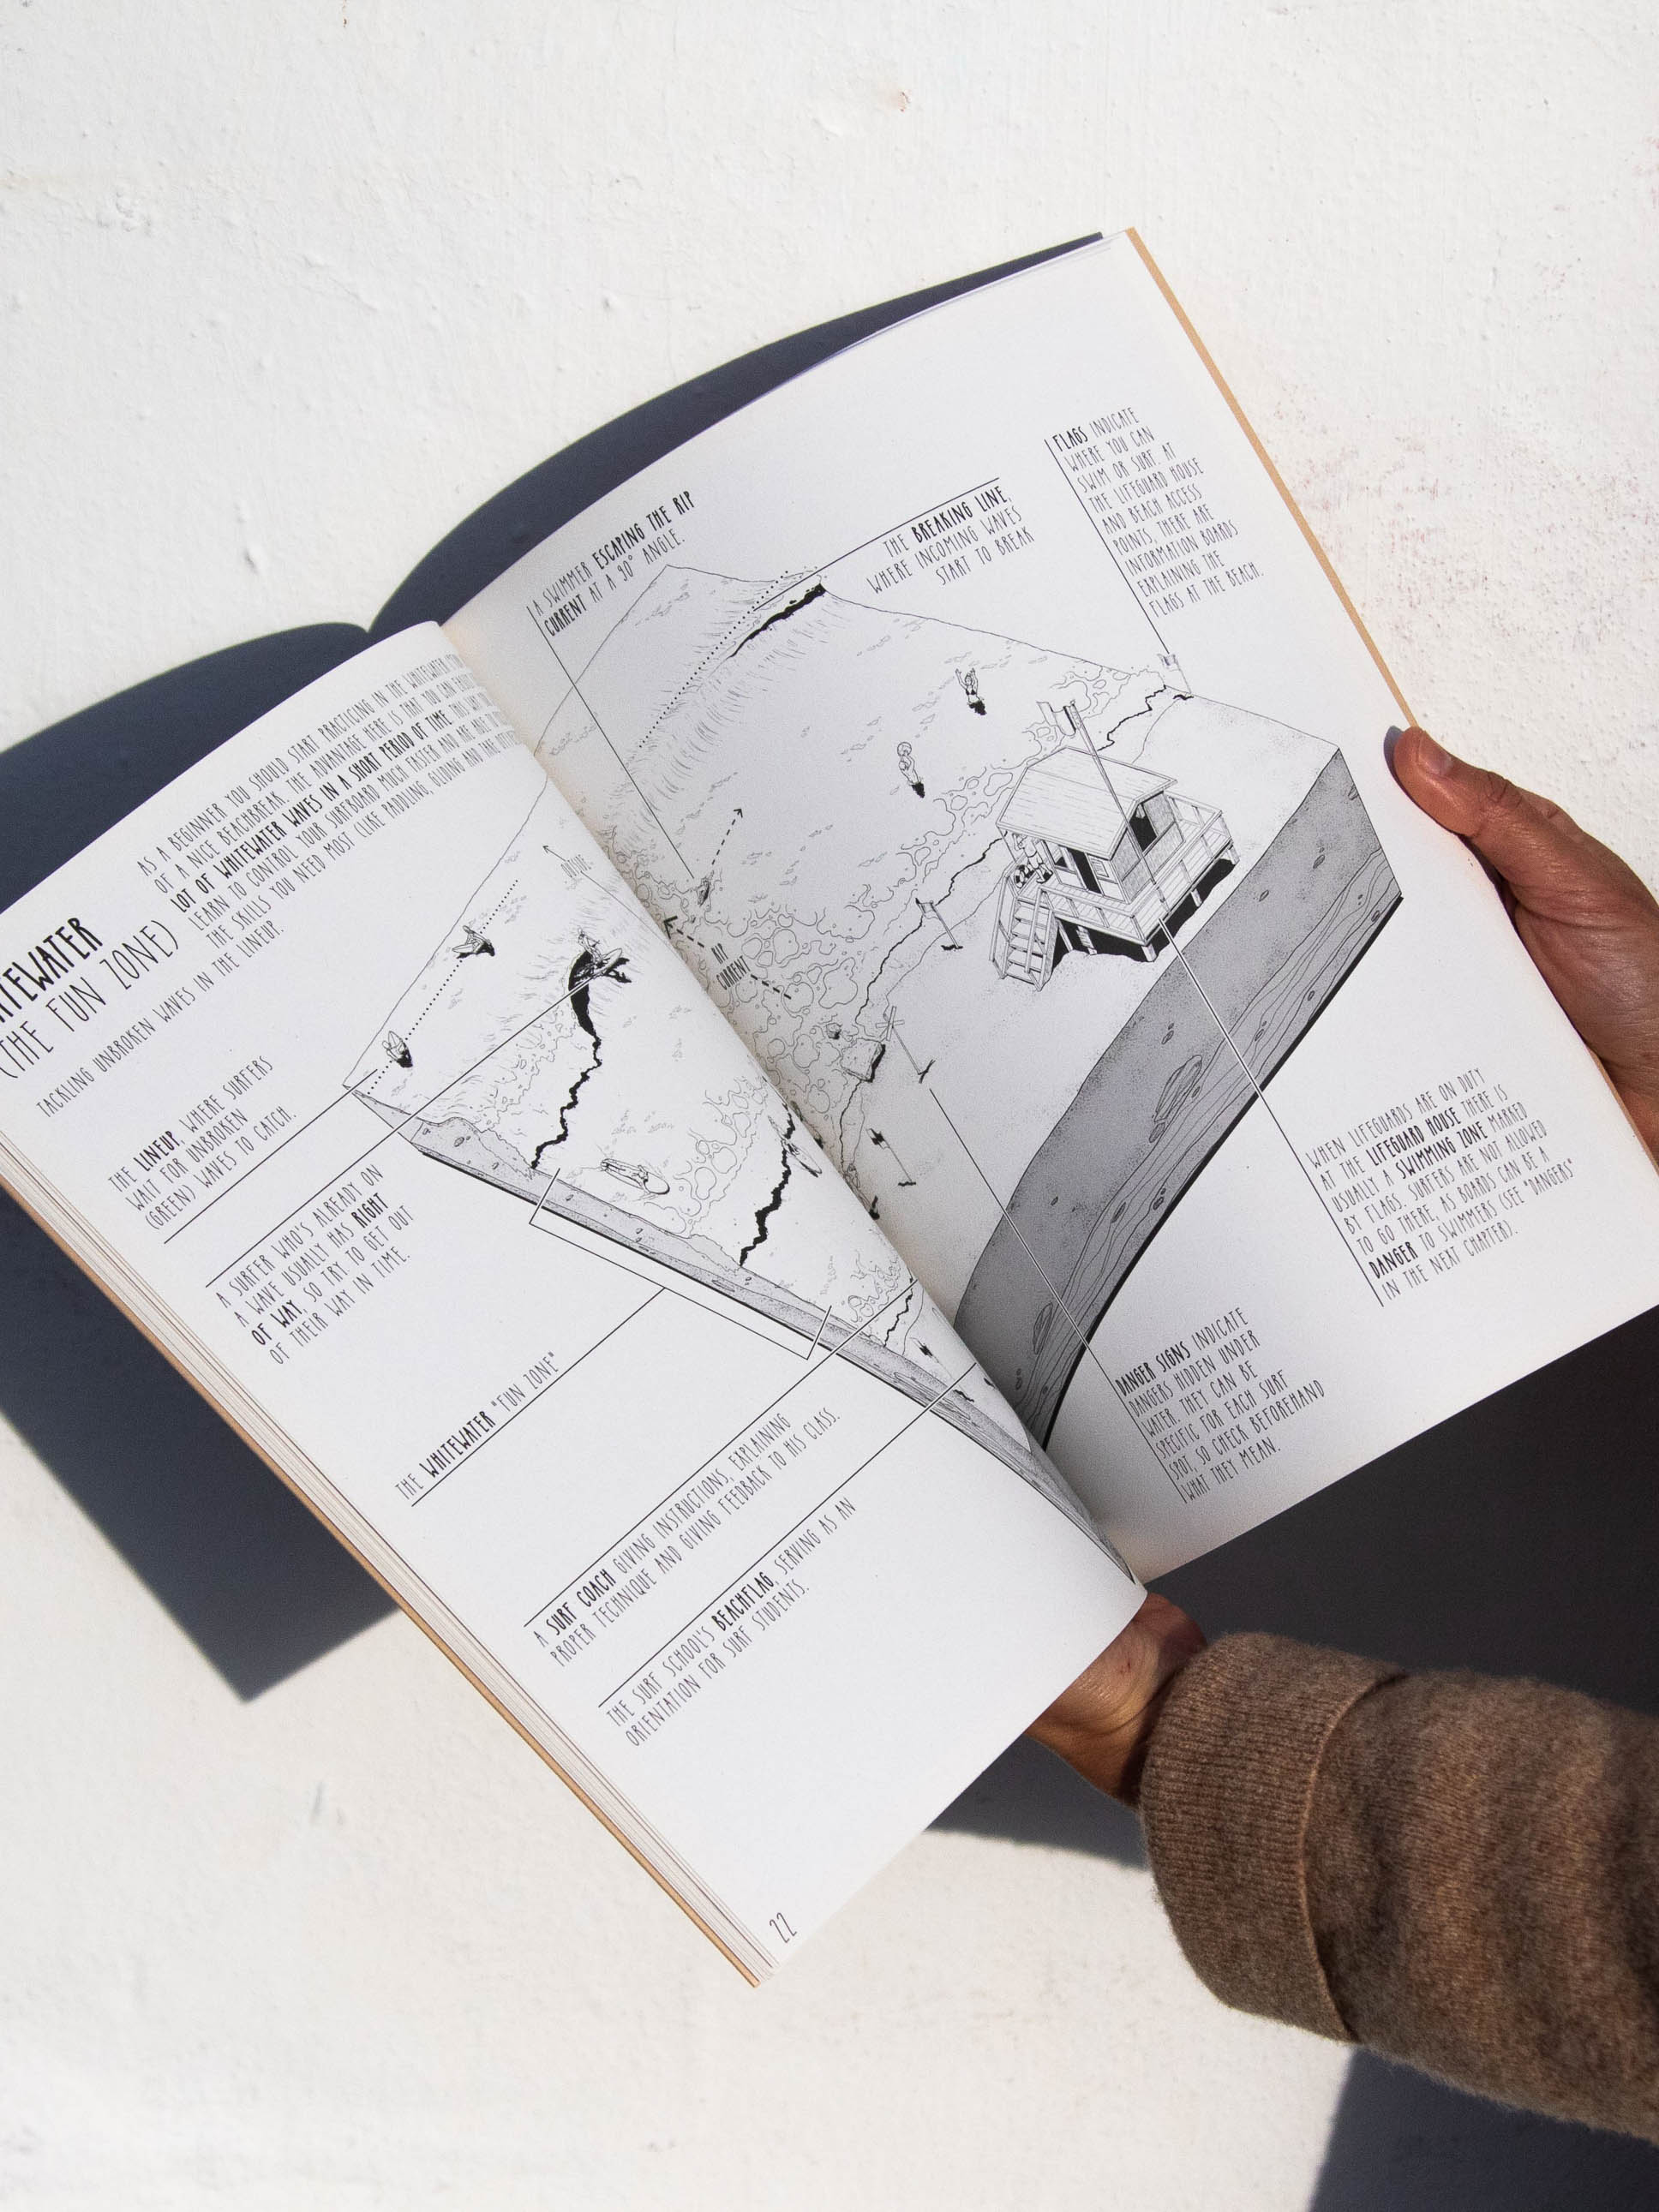 (THE FUN ZONE)
TACKLING UNBROKEN WAVES IN THE LINEUP.
AS A BEGINNER YOU SHOULD START PRACTICING IN THE WHITEWATER
OF A NICE BEACHBREAK. THE ADVANTAGE HERE IS THAT YOU CAN
LOT OF WHITEWATER WAVES IN A SHORT PERIOD OF TIME. THIS WAY
LEARN TO CONTROL YOUR SURFBOARD MUCH FASTER AND ARE ABLE TO
THE SKILLS YOU NEED MOST (LIKE PADDLING, GLIDING AND
THE LINEUP, WHERE SURFERS
WAIT FOR UNBROKEN
(GREEN) WAVES TO CATCH.
A SURFER WHO'S ALREADY ON
A WAVE USUALLY HAS RIGHT
OF WAY, SO TRY TO GET OUT
OF THEIR WAY IN TIME.
THE WHITEWATER "FUN ZONE"
A SURF COACH GIVING INSTRUCTIONS, EXPLAINING
PROPER TECHNIQUE AND GIVING FEEDBACK TO HIS CLASS.
THE SURF SCHOOL'S BEACHFLAG, SERVING AS AN
ORIENTATION FOR SURF STUDENTS.
22
A SWIMMER ESCAPING THE RIP
CURRENT AT A 90° ANGLE.
THE BREAKING LINE,
WHERE INCOMING WAVES
START TO BREAK
FLAGS INDICATE
WHERE YOU CAN
SWIM OR SURF. AT
THE LIFEGUARD HOUSE
AND BEACH ACCESS
POINTS, THERE ARE
INFORMATION BOARDS
EXPLAINING THE
FLAGS AT THE BEACH.
RIP
CURRENT
WHEN LIFEGUARDS ARE ON DUTY
AT THE LIFEGUARD HOUSE THERE IS
USUALLY A SWIMMING ZONE MARKED
BY FLAGS. SURFERS ARE NOT ALLOWED
TO GO THERE, AS BOARDS CAN BE A
DANGER TO SWIMMERS (SEE "DANGERS"
IN THE NEXT CHAPTER).
DANGER SIGNS INDICATE
DANGERS HIDDEN UNDER
WATER. THEY CAN BE
SPECIFIC FOR EACH SURF
SPOT, SO CHECK BEFOREHAND
WHAT THEY MEAN.